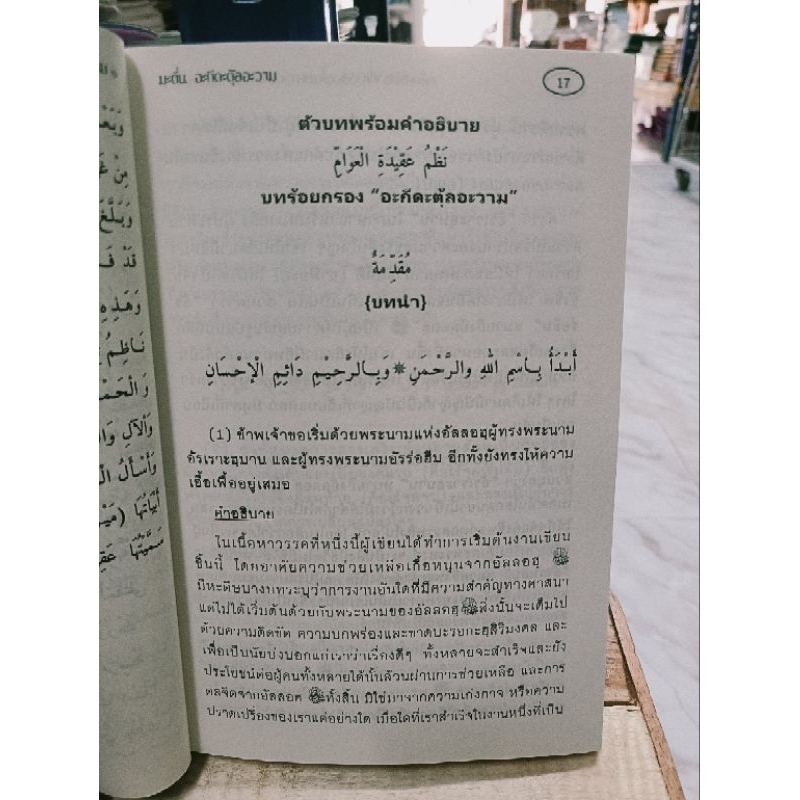 มะตั่น อะกีดะตุ้ลอะวาม
17
ตัวบทพร้อมคำอธิบาย
نَظْمُ عَقِيْدَةِ الْعَوَامِّ
บทร้อยกรอง “อะกีดะตุ้ลอะวาม”
مُقَدِّمَةٌ
{บทนำ}
أَبْدَأُ بِاسْمِ اللهِ والرَّحْمَنِ * وَبِالرَّحِيْمِ دَائِمِ الْإِحْسَانِ
(1) ข้าพเจ้าขอเริ่มด้วยพระนามแห่งอัลลอฮฺผู้ทรงพระนาม
อัรเราะฮฺมาน และผู้ทรงพระนามอัรร่อฮีม อีกทั้งยังทรงให้ความ
เอื้อเฟื้ออยู่เสมอ
คำอธิบาย
ในเนื้อหาวรรคที่หนึ่งนี้ผู้เขียนได้ทำการเริ่มต้นงานเขียน
ชิ้นนี้ โดยอาศัยความช่วยเหลือเกื้อหนุนจากอัลลอฮฺ
มีหะดีษบางบทระบุว่าการงานอันใดที่มีความสำคัญทางศาสนา
แต่ไม่ได้เริ่มต้นด้วยกับพระนามของอัลลอฮฺ สิ่งนั้นจะเต็มไป
ด้วยความติดขัด ความบกพร่องและขาดบะรอกะฮฺสิริมงคล และ
เพื่อเป็นนัยบ่งบอกแก่เราว่าเรื่องดีๆ ทั้งหลายจะสำเร็จและยัง
ประโยชน์ต่อผู้คนทั้งหลายได้นั้นล้วนผ่านการช่วยเหลือ และการ
ดลจิตจากอัลลอฮฺ ทั้งสิ้น มิใช่มาจากความเก่งกาจ หรือความ
ปราดเปรื่องของเราแต่อย่างใด เมื่อใดที่เราสำเร็จในงานหนึ่งที่เป็น